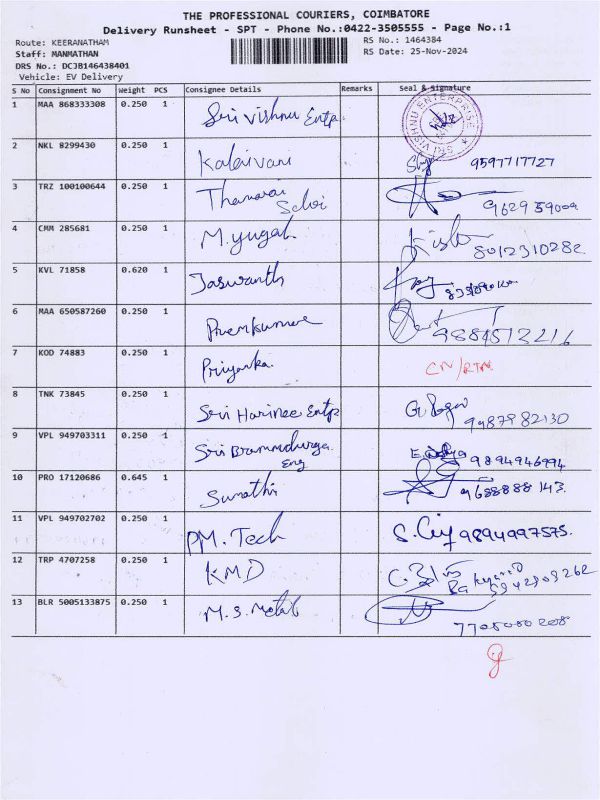 THE PROFESSIONAL COURIERS, COIMBATORE
Delivery Runsheet - SPT - Phone No.:0422-3505555 - Page No.:1
Route: KEERANATHAM
RS No.: 1464384
Staff: MANMATHAN
RS Date: 25-Nov-2024
DRS No.: DCJB146438401
Vehicle: EV Delivery
S No Consignment No Weight PCS Consignee Details Remarks Seal & Signature
1 MAA 868333308 0.250 1 Sri Vishnu Entp. SRI VISHNU ENTERPRISE
2 NKL 8299430 0.250 1 Kalaivani 9597717727
3 TRZ 100100644 0.250 1 Thamarai
Selvi
4 CMM 285681 0.250 1 M. yugah 8012310282
5 KVL 71858 0.620 1 Jaswanth
6 MAA 650587260 0.250 1 Premkumar
7 KOD 74883 0.250 1 Priyanka CN/RTN
8 TNK 73845 0.250 1 Sri Harinee Entp 9487982130
9 VPL 949703311 0.250 1 Sri Brammdurga
Eng
9894946994
10 PRO 17120686 0.645 1 Sumathi 9688888143.
11 VPL 949702702 0.250 1 PM. Tech 9894997575.
12 TRP 4707258 0.250 1 KMD
13 BLR 5005133875 0.250 1 M.S. Metal